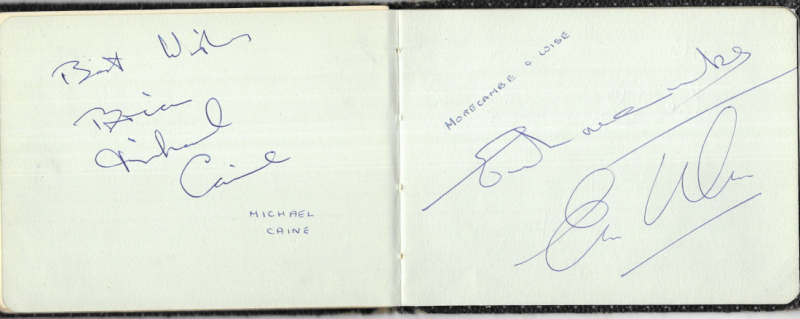 Best Wishes
Brian
Michael
Caine
MICHAEL
CAINE
MORECAMBE & WISE
Eric Morecambe
Ernie Wise